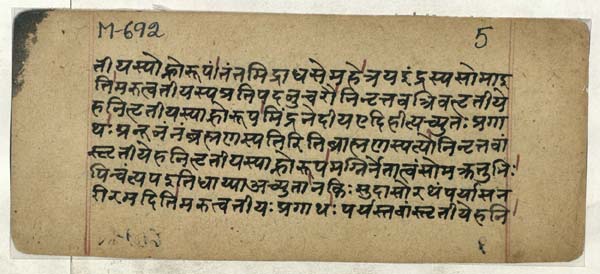 M-692
5
तीयस्याह्नो रूपं तं तमिद्राधसे महे त्रय इंद्रस्य सोमा इ
ति मरुत्वतीयस्य प्रतिपदनुचरौ निनृत्तवत्त्रिवत्तृतीये
हनि तृतीयस्याह्नो रूपमिंद्र नेदीय एदिहीत्यच्युतः प्रगा
थः प्र नूनं ब्रह्मणस्पतिरिति ब्राह्मणस्पत्यो निनृत्तवां
स्तृतीयेहनि तृतीयस्याह्नो रूपमग्निर्नेता त्वं सोम क्रतुभिः
पिन्वंत्यप इति धाय्या अच्युता नकिः सुदासो रथं पर्यास न
रीरमदिति मरुत्वतीयः प्रगाथः पर्यस्तवांस्तृतीयेहनि